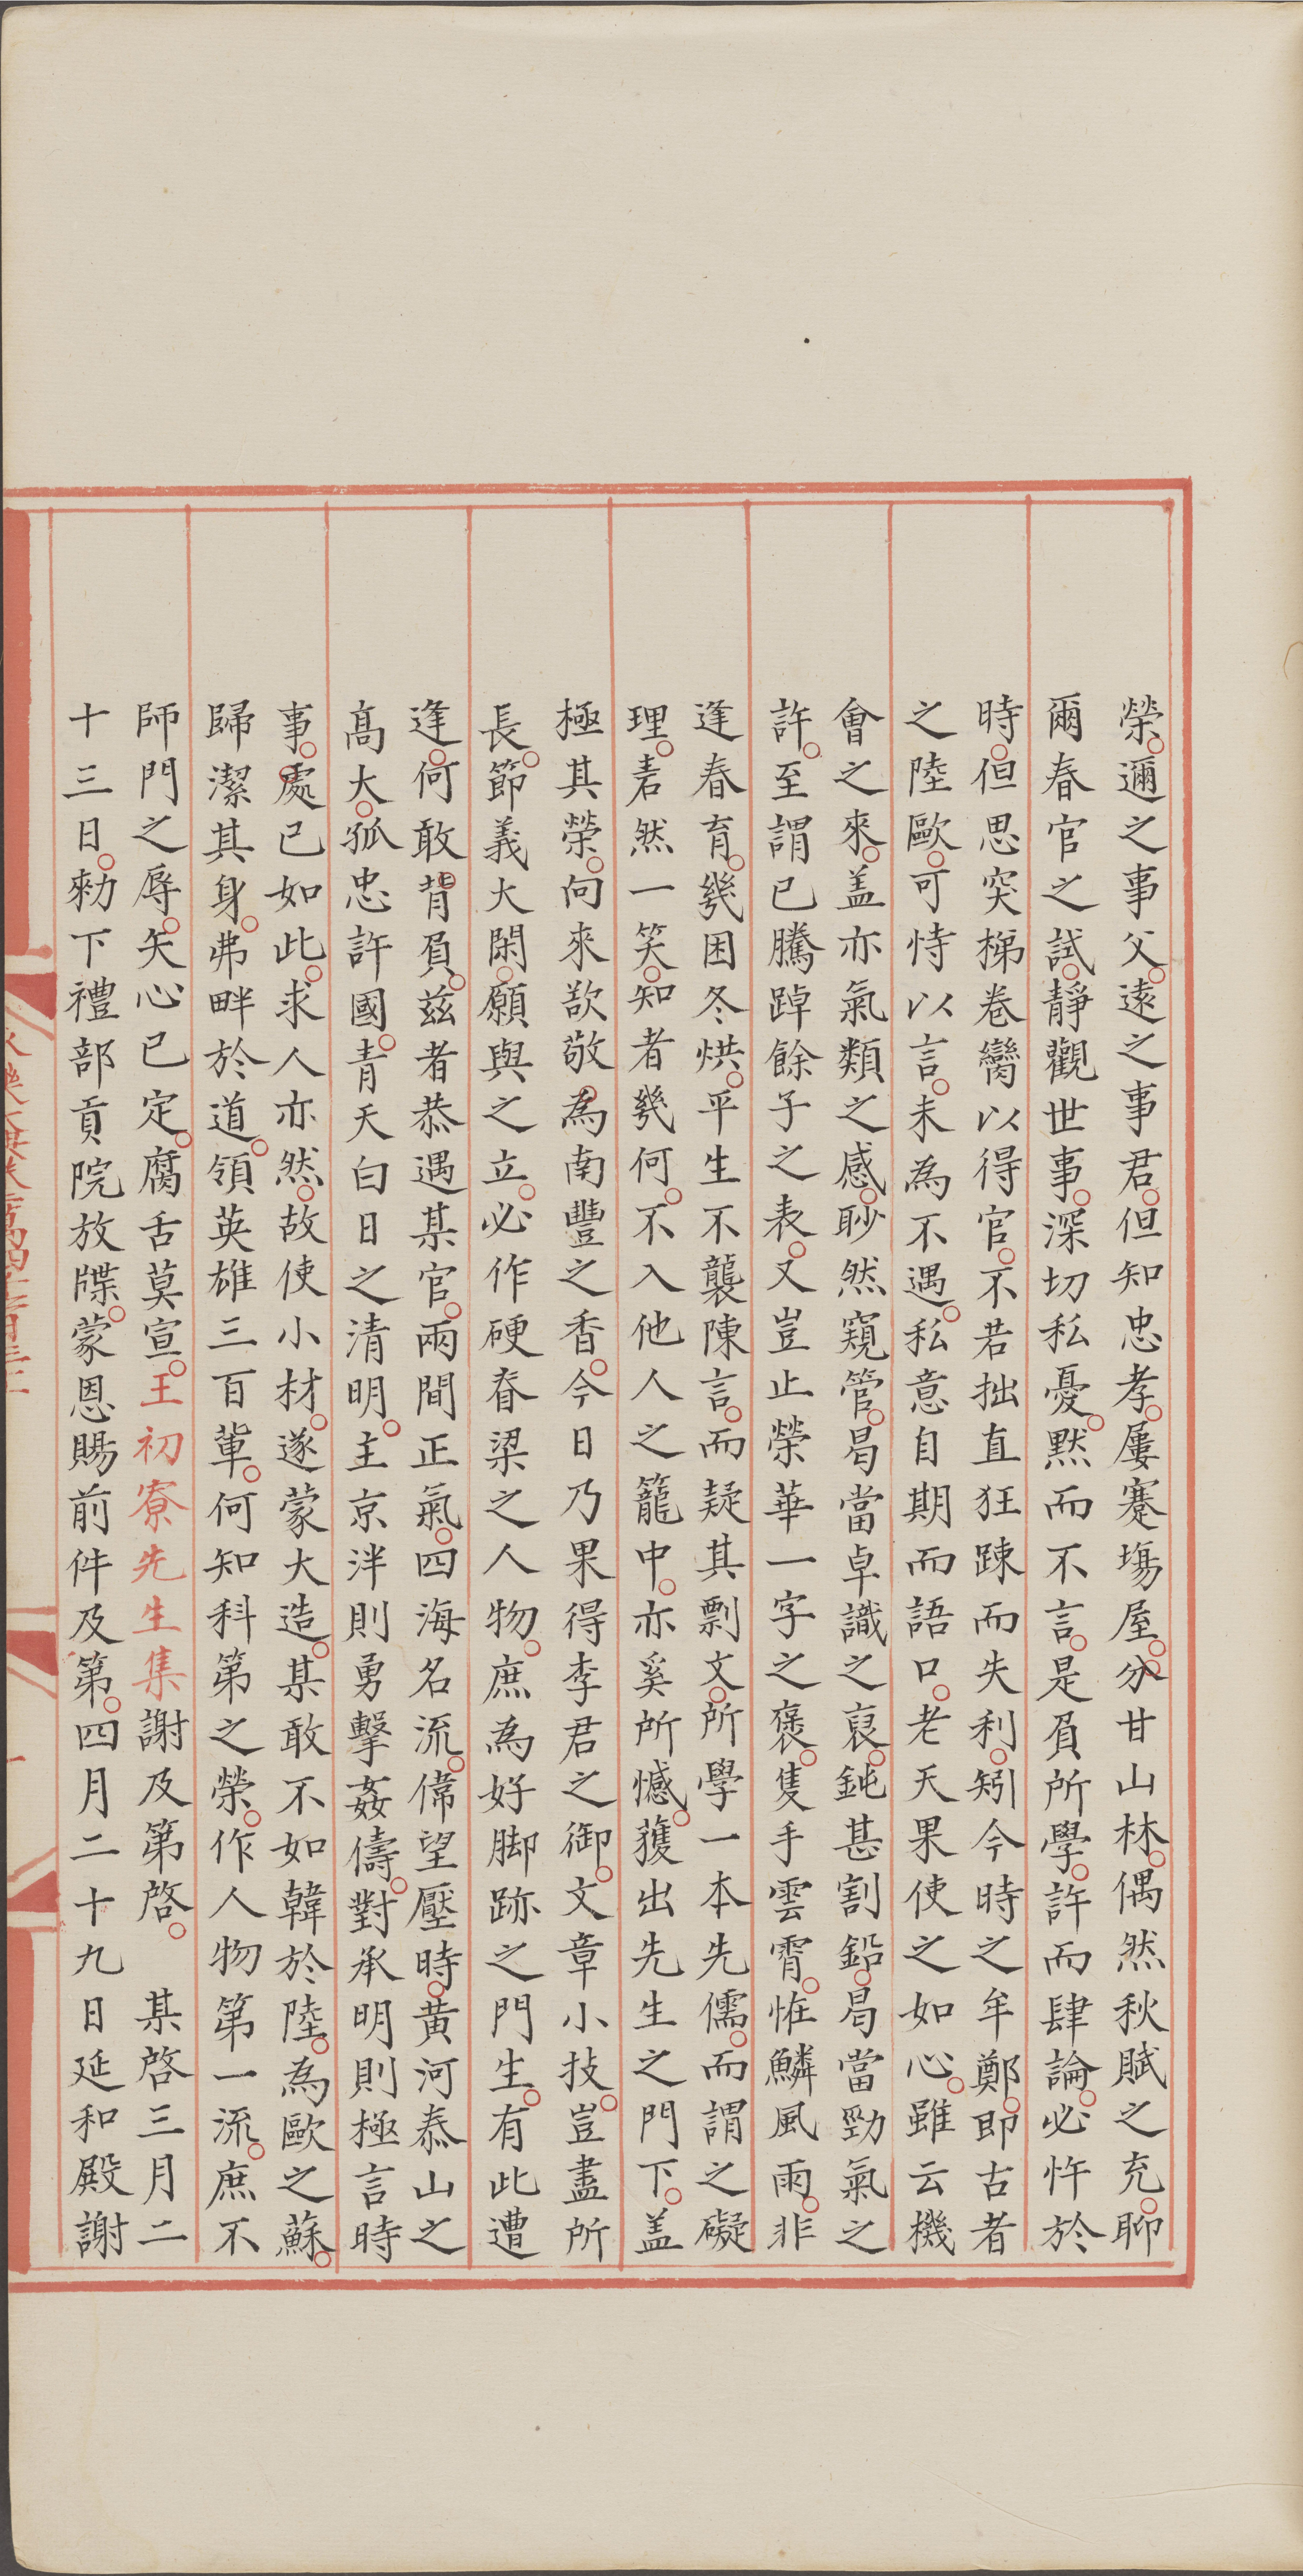 榮邇之事父遠之事君但知忠孝屢蹇場屋分甘山林偶然秋賦之充聊
爾春官之試靜觀世事深切私憂默而不言是負所學許而肆論必忤於
時但思突梯卷臠以得官不若拙直狂踈而失利矧今時之牟鄭即古者
之陸歐可恃以言未為不遇私意自期而語口老天果使之如心雖云機
會之來盖亦氣類之感眇然窺管曷當卓識之裒鈍甚割鉛曷當勁氣之
許至謂已騰踔餘子之表又豈止榮華一字之褒隻手雲霄恠鱗風雨非
逢春育幾困冬烘平生不襲陳言而疑其剽文所學一本先儒而謂之礙
理砉然一笑知者幾何不入他人之籠中亦奚所憾獲出先生之門下盖
極其榮向來歆敬為南豐之香今日乃果得李君之御文章小技豈盡所
長節義大閑願與之立必作硬脊梁之人物庶為好脚跡之門生有此遭
逢何敢背負兹者恭遇某官兩間正氣四海名流偉望壓時黃河泰山之
高大孤忠許國青天白日之清明主京泮則勇擊姦儔對承明則極言時
事處已如此求人亦然故使小材遂蒙大造某敢不如韓於陸為歐之蘇
歸潔其身弗畔於道領英雄三百輩何知科第之榮作人物第一流庶不
師門之辱矢心已定腐舌莫宣王初寮先生集謝及第啓 某啓三月二
十三日勑下禮部貢院放牒蒙恩賜前件及第四月二十九日延和殿謝